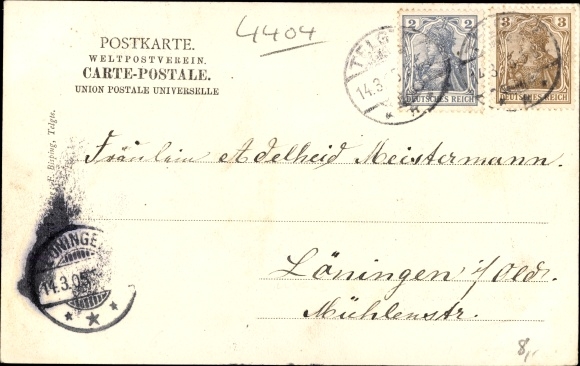 4404
POSTKARTE.
WELTPOSTVEREIN.
CARTE-POSTALE.
UNION POSTALE UNIVERSELLE
2 2
DEUTSCHES REICH
3 3
DEUTSCHES REICH
TELG
14.3.05
F. Bisping, Telgte.
Fräulein Adelheid Meistermann.
Löningen i/Old.
Mühlenstr.
LÖNINGE
14.3.05
8,-